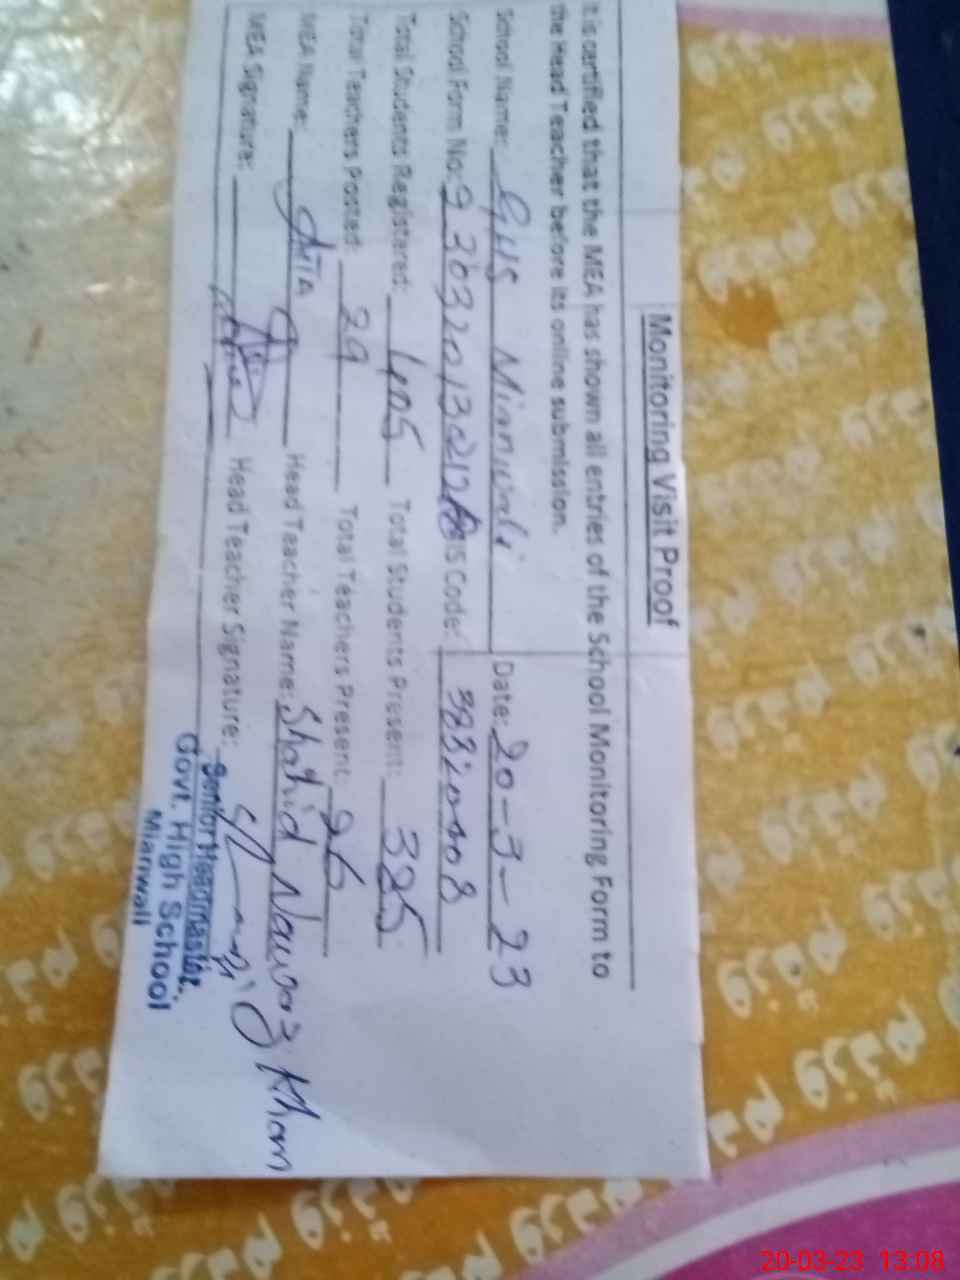 Monitoring Visit Proof
It is certified that the MEA has shown all entries of the School Monitoring Form to
the Head Teacher before its online submission.
School Name: GHS Mianwali Date: 20-3-23
School Form No: EMIS Code:
Total Students Registered: 405 Total Students Present: 325
Total Teachers Posted: 29 Total Teachers Present: 26
MEA Name: Head Teacher Name: Shahid Nawaz Khan
MEA Signature: Head Teacher Signature:
Senior Headmaster.
Govt. High School
Mianwali
20-03-23 13:08